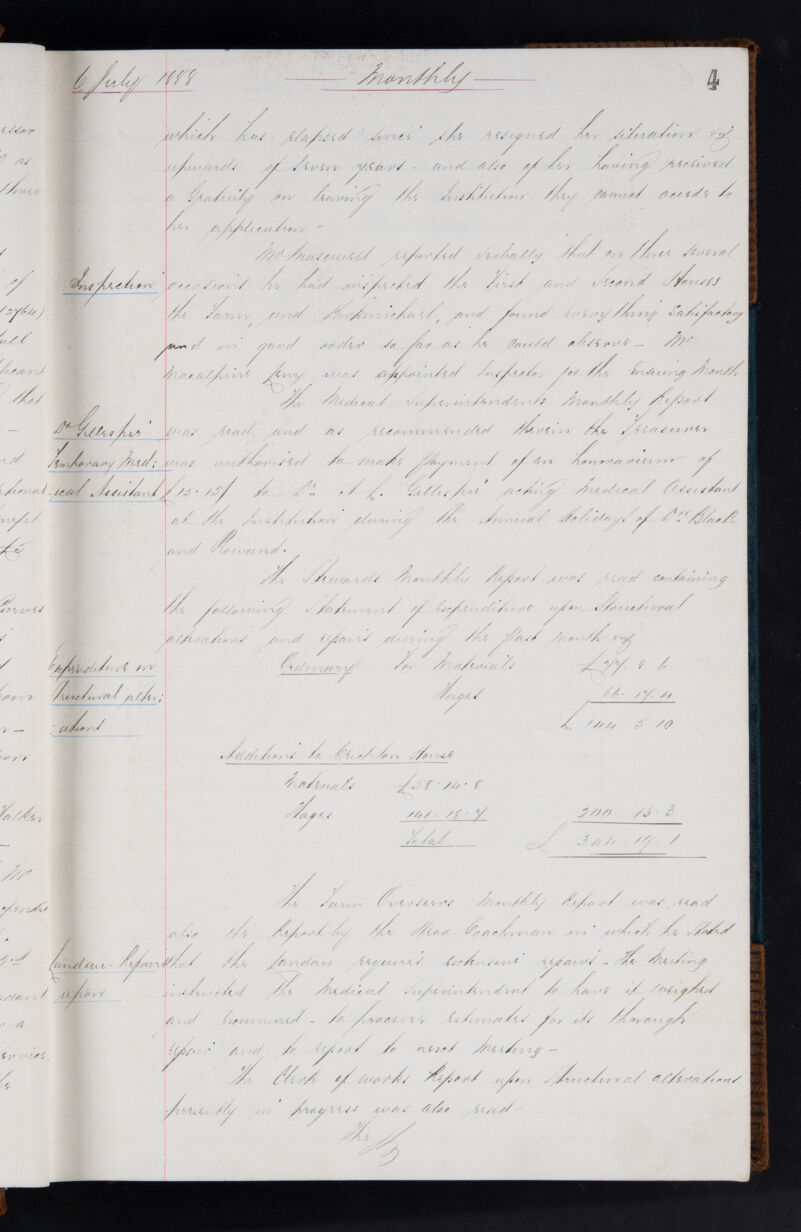 6 July 1888 Monthly 4
which has elapsed since she resigned her situation viz
upwards of seven years - and also of her having received
a Gratuity on leaving the Institution they cannot accede to
her application -
Mr Maxwell reported verbally that on three several
Inspection occasions he had inspected the First and Second Houses
the Farm, and Kirkmichael, and found everything satisfactory
and in good order so far as he could observe - Mr
Macalpine Leny was appointed Inspector for the ensuing Month
The Medical Superintendents Monthly Report
Dr Gillespie was read and as recommended therein the Treasurer
Temporary Med: was authorised to make payment of an honorarium of
ical Assistant £15.15/ to Dr. A L. Gillespie acting Medical Assistant
at the Institution during the Annual Holidays of Drs Black
and Rowand.
The Stewards Monthly Report was read containing
the following Statement of Expenditure upon Structural
alterations and repairs during the past month viz
Expenditure on Ordinary For Materials £77. 8 6
Structural alter: Wages 66. 17. 4
:ations £ 144. 5. 10
Additions to Crichton House
Materials £58. 14. 8
Wages 141. 18. 7 200. 13. 3
Total £ 344. 19. 1
The Farm Overseers Monthly Report was read
also the Report by the Head Coachman in which he stated
Landau Repairs that the Landau requires extensive repairs - The Meeting
upon instructed the Medical Superintendent to have it weighed
and examined - to procure estimates for its thorough
repair and to report to next Meeting -
The Clerk of works Report upon Structural alterations
presently in progress was also read -
The